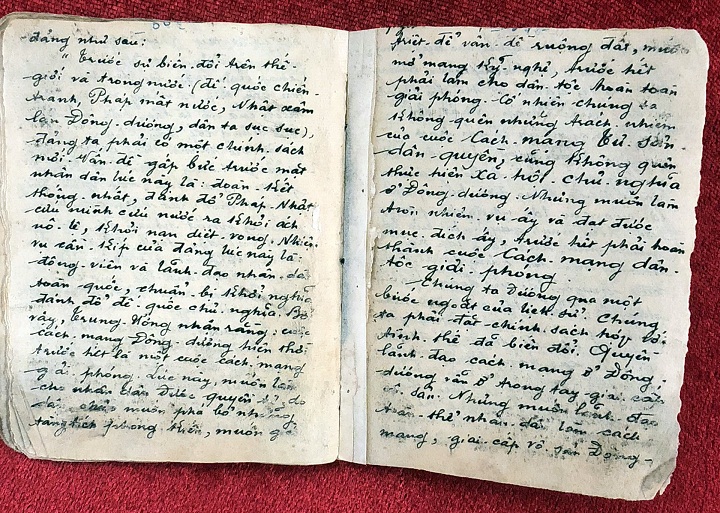 đảng như sau:
"Trước sự biến đổi trên thế-
giới và trong nước (đế-quốc chiến-
tranh, Pháp mất nước, Nhật xâm
lăn Đông-dương, dân ta sục sục),
đảng ta phải có một chính-sách
mới. Vấn đề gấp bức trước mắt
nhân dân lúc này là: đoàn-kết
thống-nhất, đánh đổ Pháp Nhật
cứu mình cứu nước ra khỏi ách
nô-lệ, khỏi nạn diệt-vong. Nhiệm
vụ cần-kíp của đảng lúc này là
động-viên và lãnh-đạo nhân-dân
toàn quốc, chuẩn-bị khởi nghĩa
đánh đổ đế-quốc chủ-nghĩa. Bởi
vậy, Trung-ương nhận rằng: cuộc
cách-mạng Đông-dương hiện thời
trước hết là một cuộc cách-mạng
giải-phóng. Lúc này, muốn làm
cho nhân dân được quyền tự do
dân chủ, muốn phá bỏ những
tàng tích phong kiến, muốn giải
triệt-để vấn-đề ruộng đất, muốn
mở mang kỹ-nghệ, trước hết
phải làm cho dân-tộc hoàn toàn
giải phóng. Cố nhiên chúng ta
không quên những trách-nhiệm
của cuộc Cách-mạng tư-sản-
dân-quyền, cũng không quên
thực hiện xã-hội chủ-nghĩa
ở Đông-dương. Nhưng muốn làm
trọn nhiệm-vụ ấy và đạt được
mục-đích ấy, trước hết phải hoàn
thành cuộc Cách-mạng dân-
tộc giải phóng
Chúng ta đương qua một
bước ngoặt của lịch-sử. Chúng
ta phải đặt chính-sách hợp với
tình-thế đã biến đổi. Quyền
lãnh-đạo cách-mạng ở Đông-
dương vẫn ở trong tay giai cấp
vô sản. Nhưng muốn lãnh-đạo
toàn-thể nhân-dân làm cách
mạng, giai cấp vô-sản Đông-